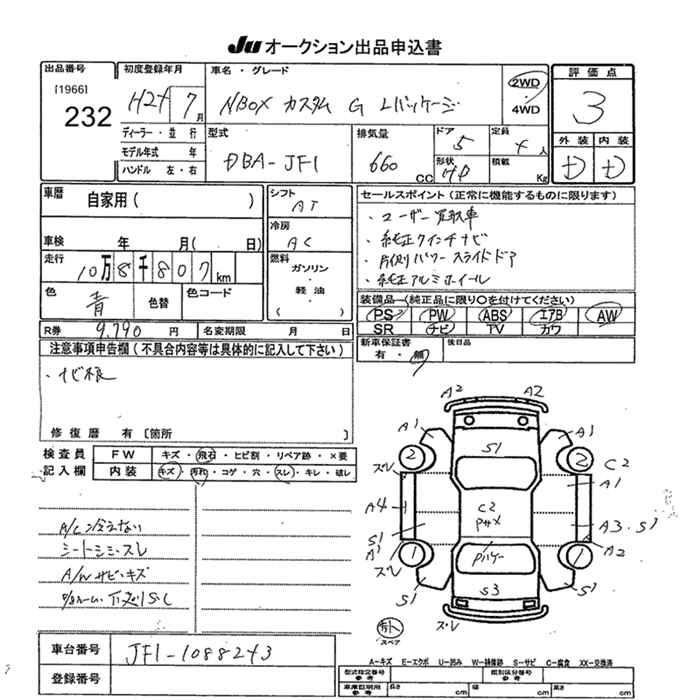 JU オークション出品申込書
出品番号
[1966]
232
初度登録年月
H24 7 月
ディーラー・並 行
モデル年式 年
ハンドル 左・右
車名・グレード
NBOX カスタム G Lパッケージ
2WD
4WD
評価点
3
外装 内装
D D
型式
DBA-JF1
排気量
660 CC
ドア
5
形状
定員
4 人
積載
Kg
車歴
自家用( )
車検 年 月( 日)
走行
10万8千807 km
色
青
色替
色コード
R券 9,790 円
名変期限 月 日
シフト
AT
冷房
AC
燃料
ガソリン・
軽油・
( )
セールスポイント(正常に機能するものに限ります)
・ユーザー買取車
・純正7インチナビ
・片側パワースライドドア
・純正アルミホイール
装備品―(純正品に限り○を付けてください)
PS PW ABS エアB AW
SR ナビ TV カワ
新車保証書
有・無
後日品
注意事項申告欄(不具合内容等は具体的に記入して下さい)
・ナビ
修復歴 有 [箇所 ]
検査員
記入欄
FW キズ・飛石・ヒビ割・リペア跡・×要
内装 キズ・汚れ・コゲ・穴・スレ・キレ・破レ
A/C冷えない
シートシミ・スレ
A/Wサビ・キズ
A2 A2
A1 A1
2 S1 2
スレ C2
A1
A4 C2
A3・S1
S1
A1 A2
1 1
スレ
S1 S3 S1
スレ
スペア
車台番号
JF1-1088243
登録番号
A―キズ E―エクボ U―凹み W―補修跡 S―サビ C―腐食 XX―交換済
型式指定番号
参考
類別区分番号
参考
車庫証明用
参考
長さ cm
幅 cm
高さ cm